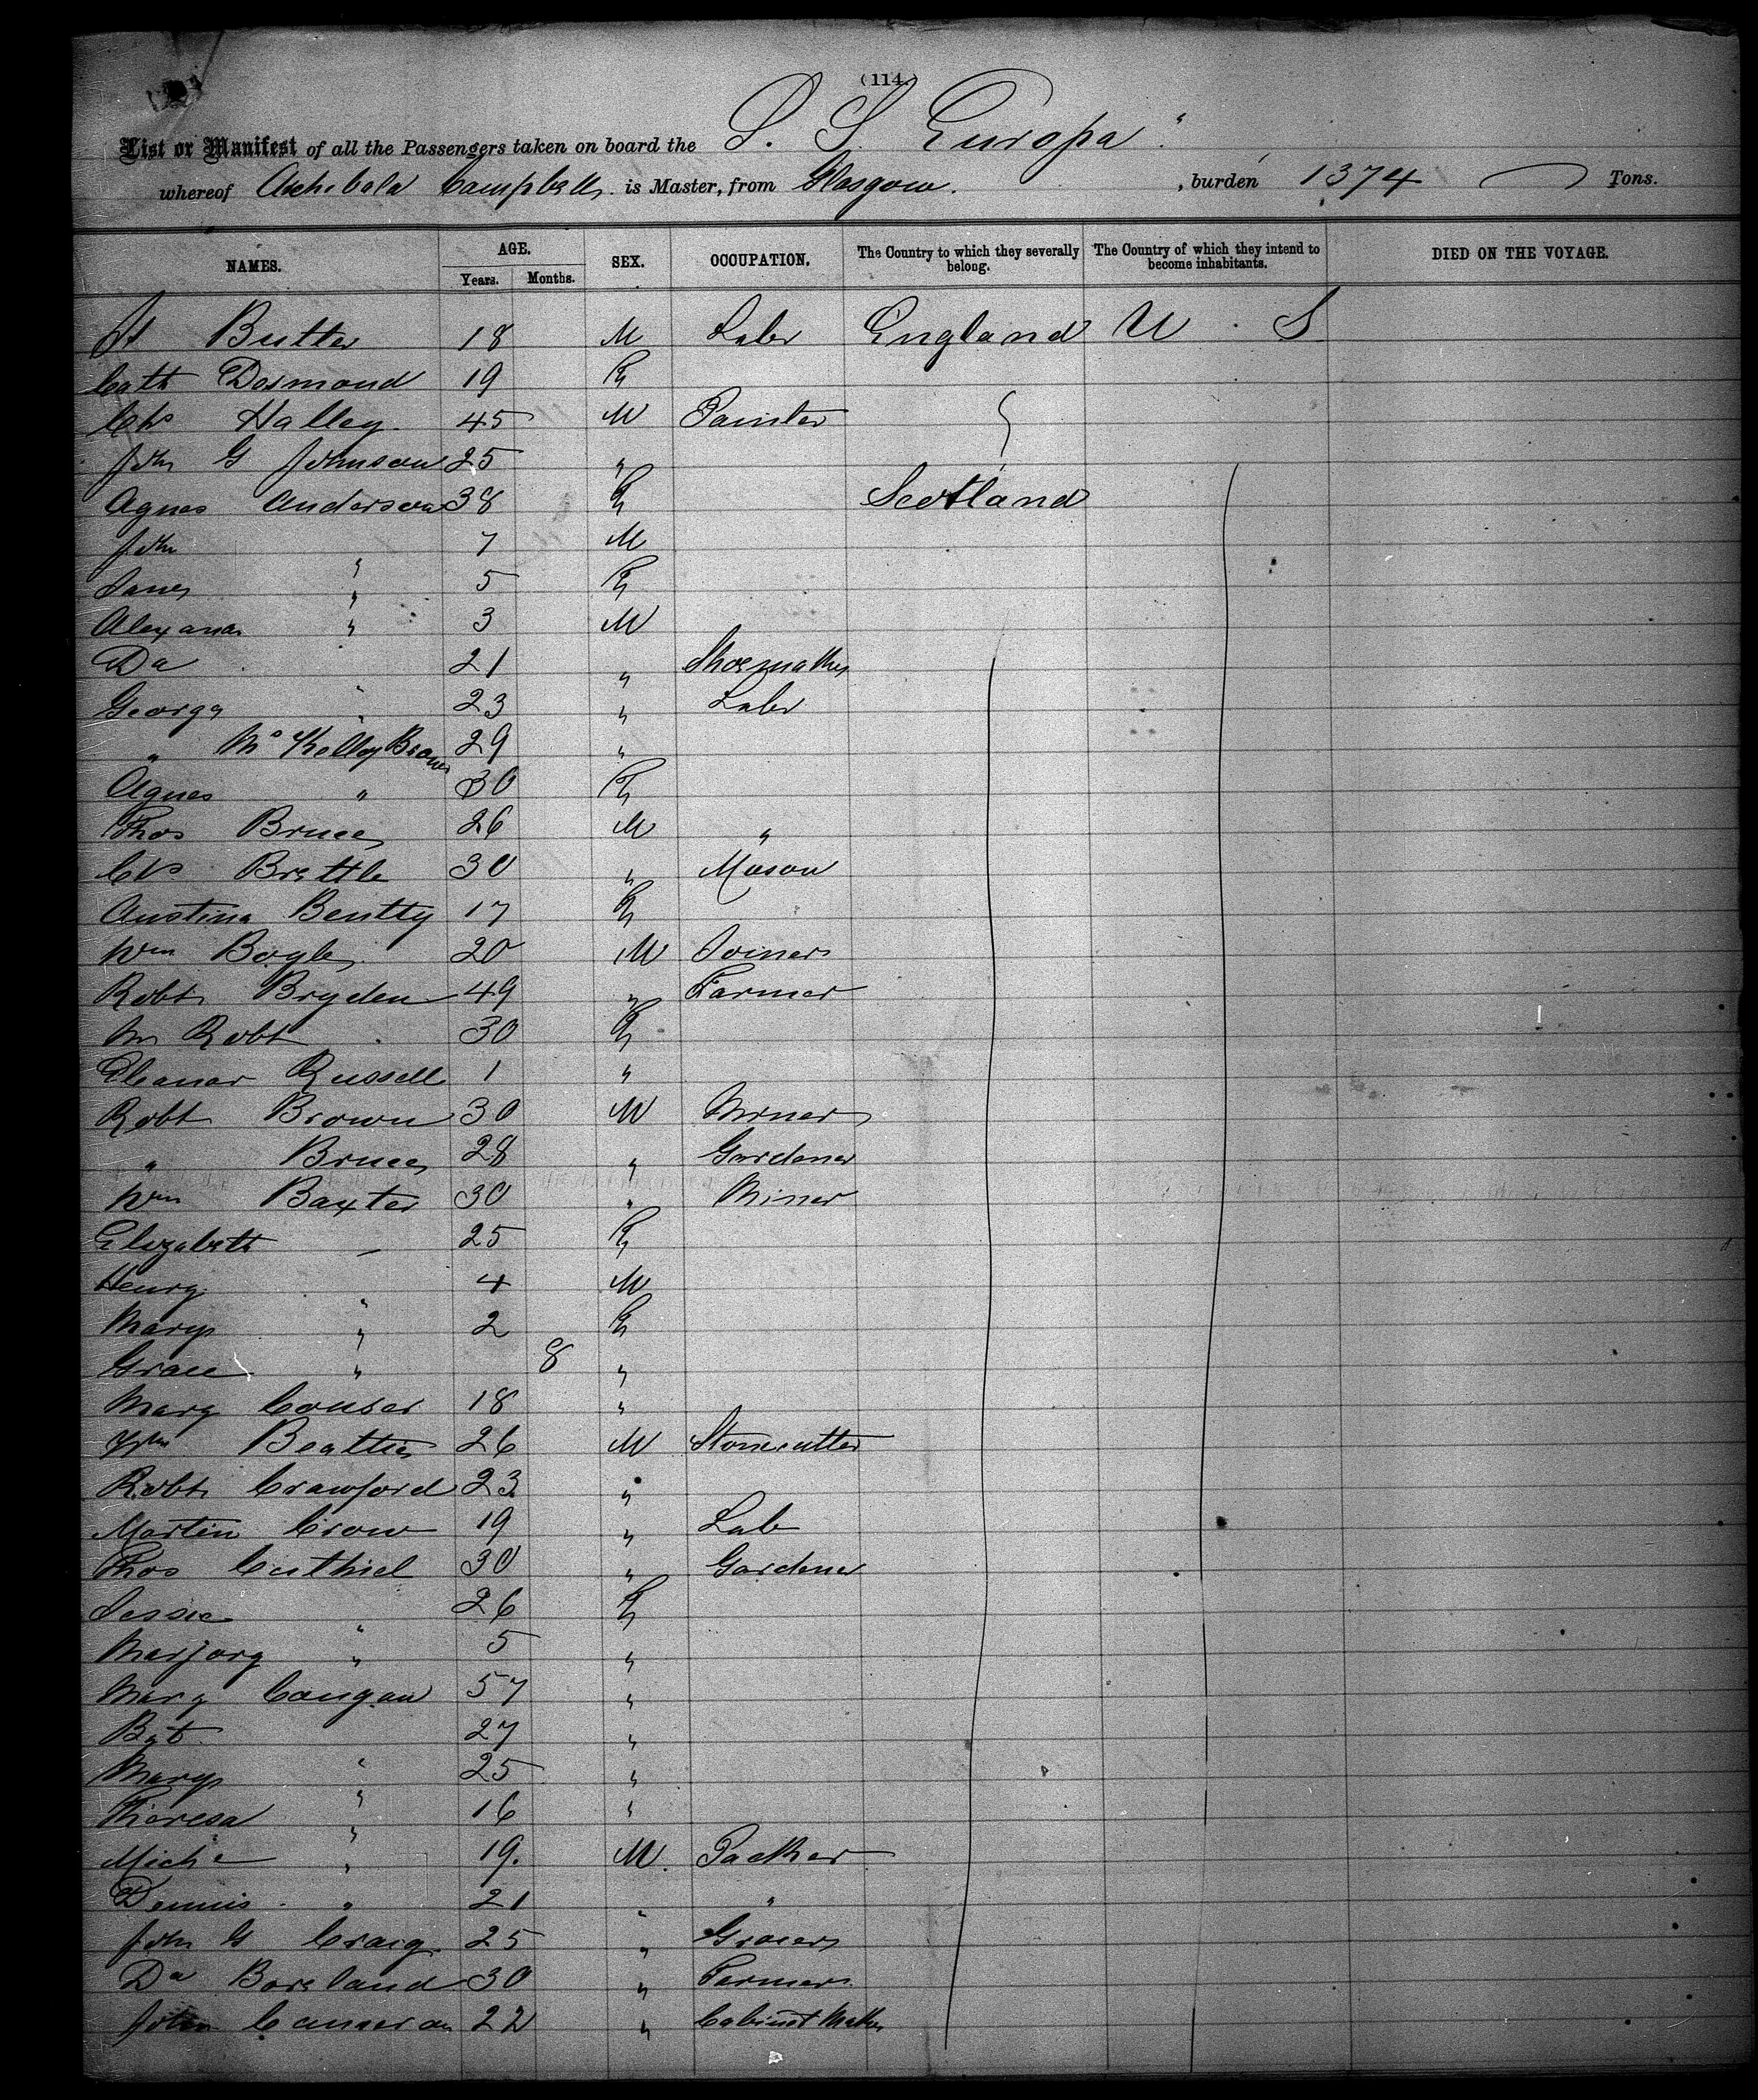 (114.)
List or Manifest of all the Passengers taken on board the S. S. Europa"
whereof Archibald Campbell is Master, from Glasgow. , burden 1374 Tons.
NAMES. AGE. SEX. OCCUPATION. The Country to which they severally belong. The Country of which they intend to become inhabitants. DIED ON THE VOYAGE.
Years. Months.
Butler 18 M Labr England U S
Cath Desmond 19 F
Chs Halley 45 M Painter
John G Johnson 25 "
Agnes Anderson 38 F Scotland
John " 7 M
Janes " 5 F
Alexander " 3 M
Da " 21 " Shoemaker
George " 23 " Labr
" Mc Kelley Brown 29 "
Agnes " 30 F
Thos Bruce 26 M "
Chs Brettle 30 " Mason
Austina Bentty 17 F
Wm Bogle 20 M Joiner
Robt Bryden 49 " Farmer
Mrs Robt 30 F
Eleanor Russell 1 "
Robt Brown 30 M Miner
" Bruce 28 " Gardener
Wm Baxter 30 " Miner
Elizabeth " 25 F
Henry " 4 M
Mary " 2 F
Grace " 8 "
Mary Couser 18 "
Beattie 26 M Stonecutter
Robt Crawford 23 "
Martin Crow 19 " Lab
Thos Cuthiel 30 " Gardener
Jessie " 26 F
Marjory " 5 "
Mary Cangan 57 "
Bgt " 27 "
Mary " 25 "
Theresa " 16 "
Mich " 19. M. Packer
Dennis " 21 " "
John G Craig 25 " Grocer
Da Borland 30 " Farmer
John Cameron 22 " Cabinet Maker